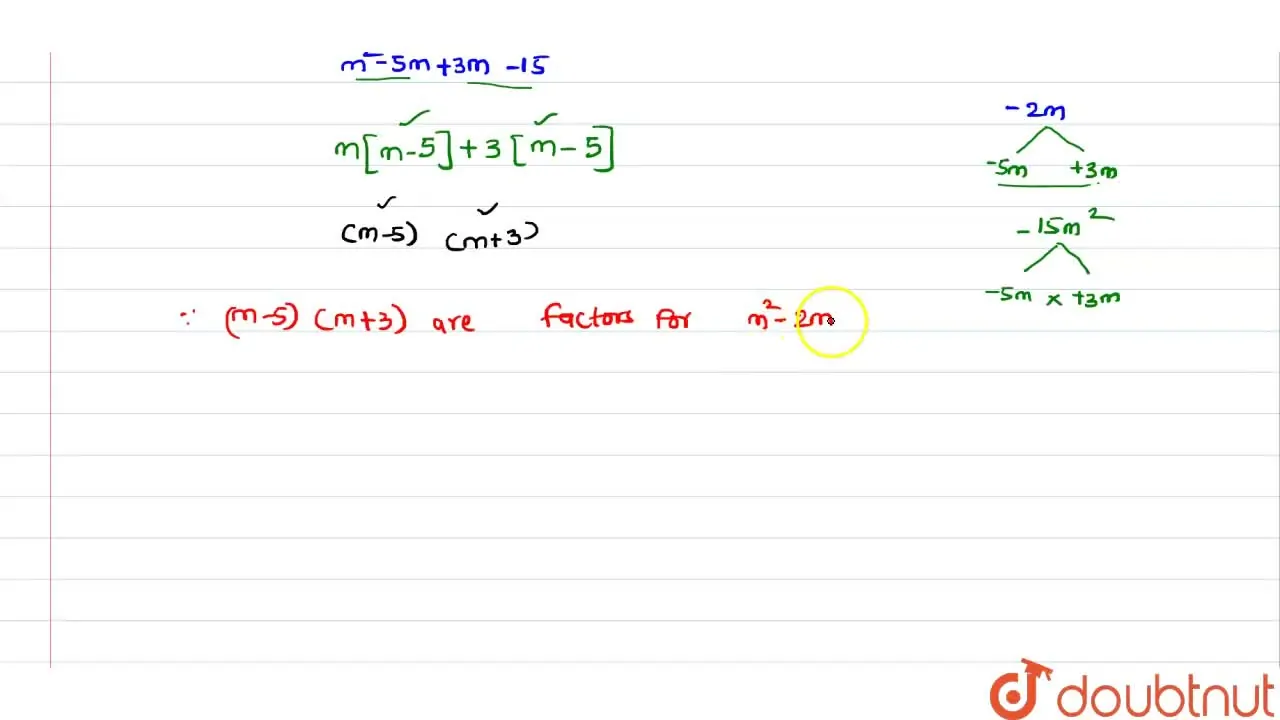 m²-5m+3m-15
m[m-5]+3[m-5]
(m-5) (m+3)
∵ (m-5) (m+3) are factors for m²-2m
-2m
-5m +3m
-15m²
-5m × +3m
doubtnut